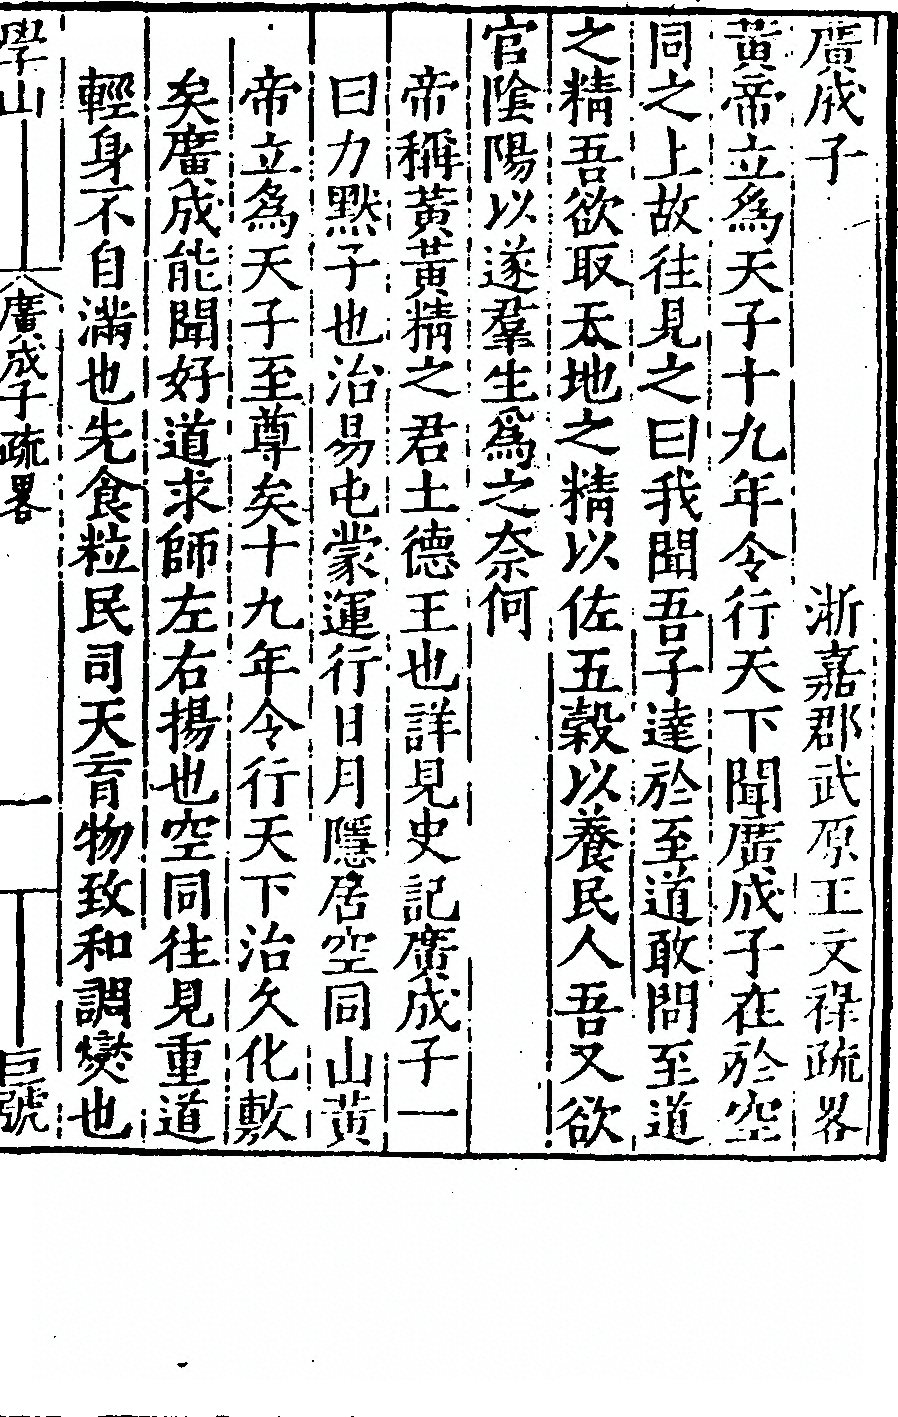 廣成子　浙嘉郡武原王文祿疏畧
黃帝立爲天子十九年令行天下聞廣成子在於空
同之上故往見之曰我聞吾子達於至道敢問至道
之精吾欲取天地之精以佐五穀以養民人吾又欲
官陰陽以遂羣生爲之奈何
帝稱黃黃精之君土德王也詳見史記廣成子一
曰力默子也治易屯蒙運行日月隱居空同山黃
帝立爲天子至尊矣十九年令行天下治久化敷
矣廣成能聞好道求師左右揚也空同往見重道
輕身不自滿也先食粒民司天育物致和調燮也
學山　廣成子疏畧　一　巨號